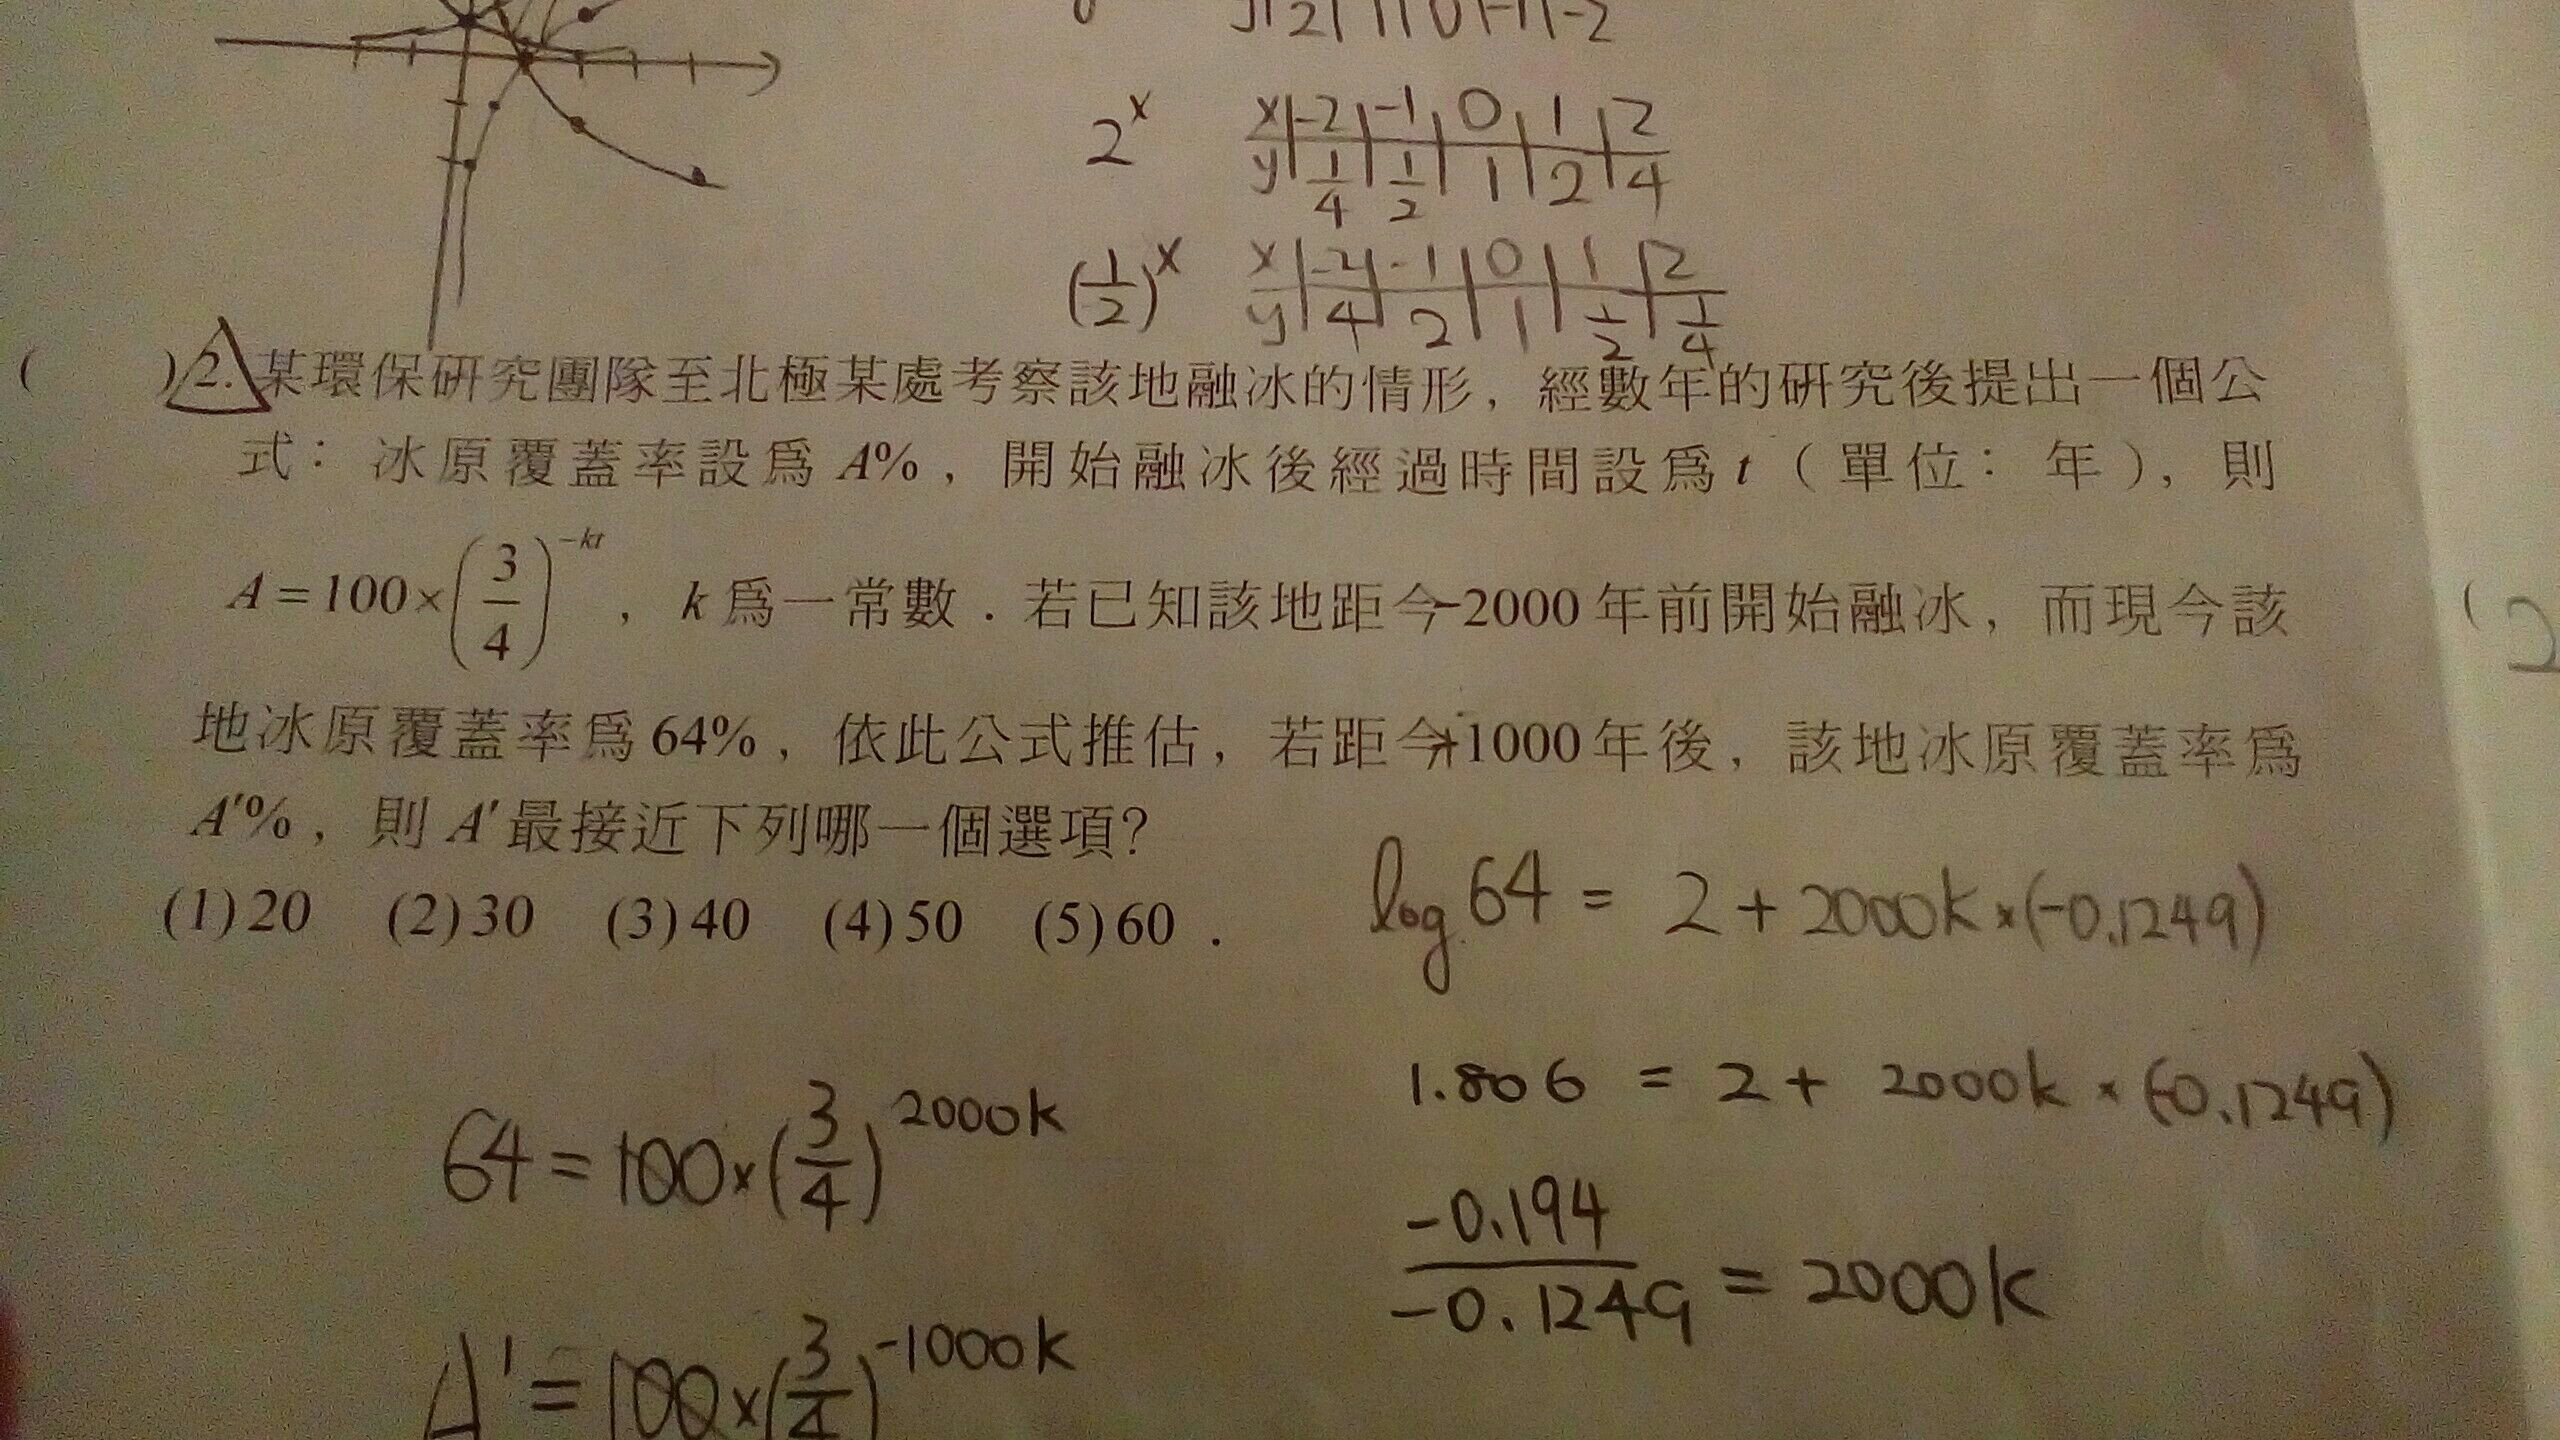 y | 2 | 1 | 0 | -1 | -2
2^x
x | -2 | -1 | 0 | 1 | 2
y | 1/4 | 1/2 | 1 | 2 | 4
(1/2)^x
x | -2 | -1 | 0 | 1 | 2
y | 4 | 2 | 1 | 1/2 | 1/4
( ) 2. 某環保研究團隊至北極某處考察該地融冰的情形，經數年的研究後提出一個公
式：冰原覆蓋率設為 A%，開始融冰後經過時間設為 t（單位：年），則
A = 100 × (3/4)^(-kt)，k 為一常數．若已知該地距今 -2000 年前開始融冰，而現今該
地冰原覆蓋率為 64%，依此公式推估，若距今 +1000 年後，該地冰原覆蓋率為
A′%，則 A′ 最接近下列哪一個選項？
(1) 20 (2) 30 (3) 40 (4) 50 (5) 60．
log 64 = 2 + 2000k × (-0.1249)
1.806 = 2 + 2000k × (-0.1249)
-0.194/-0.1249 = 2000k
64 = 100 × (3/4)^2000k
A' = 100 × (3/4)^-1000k
(
2